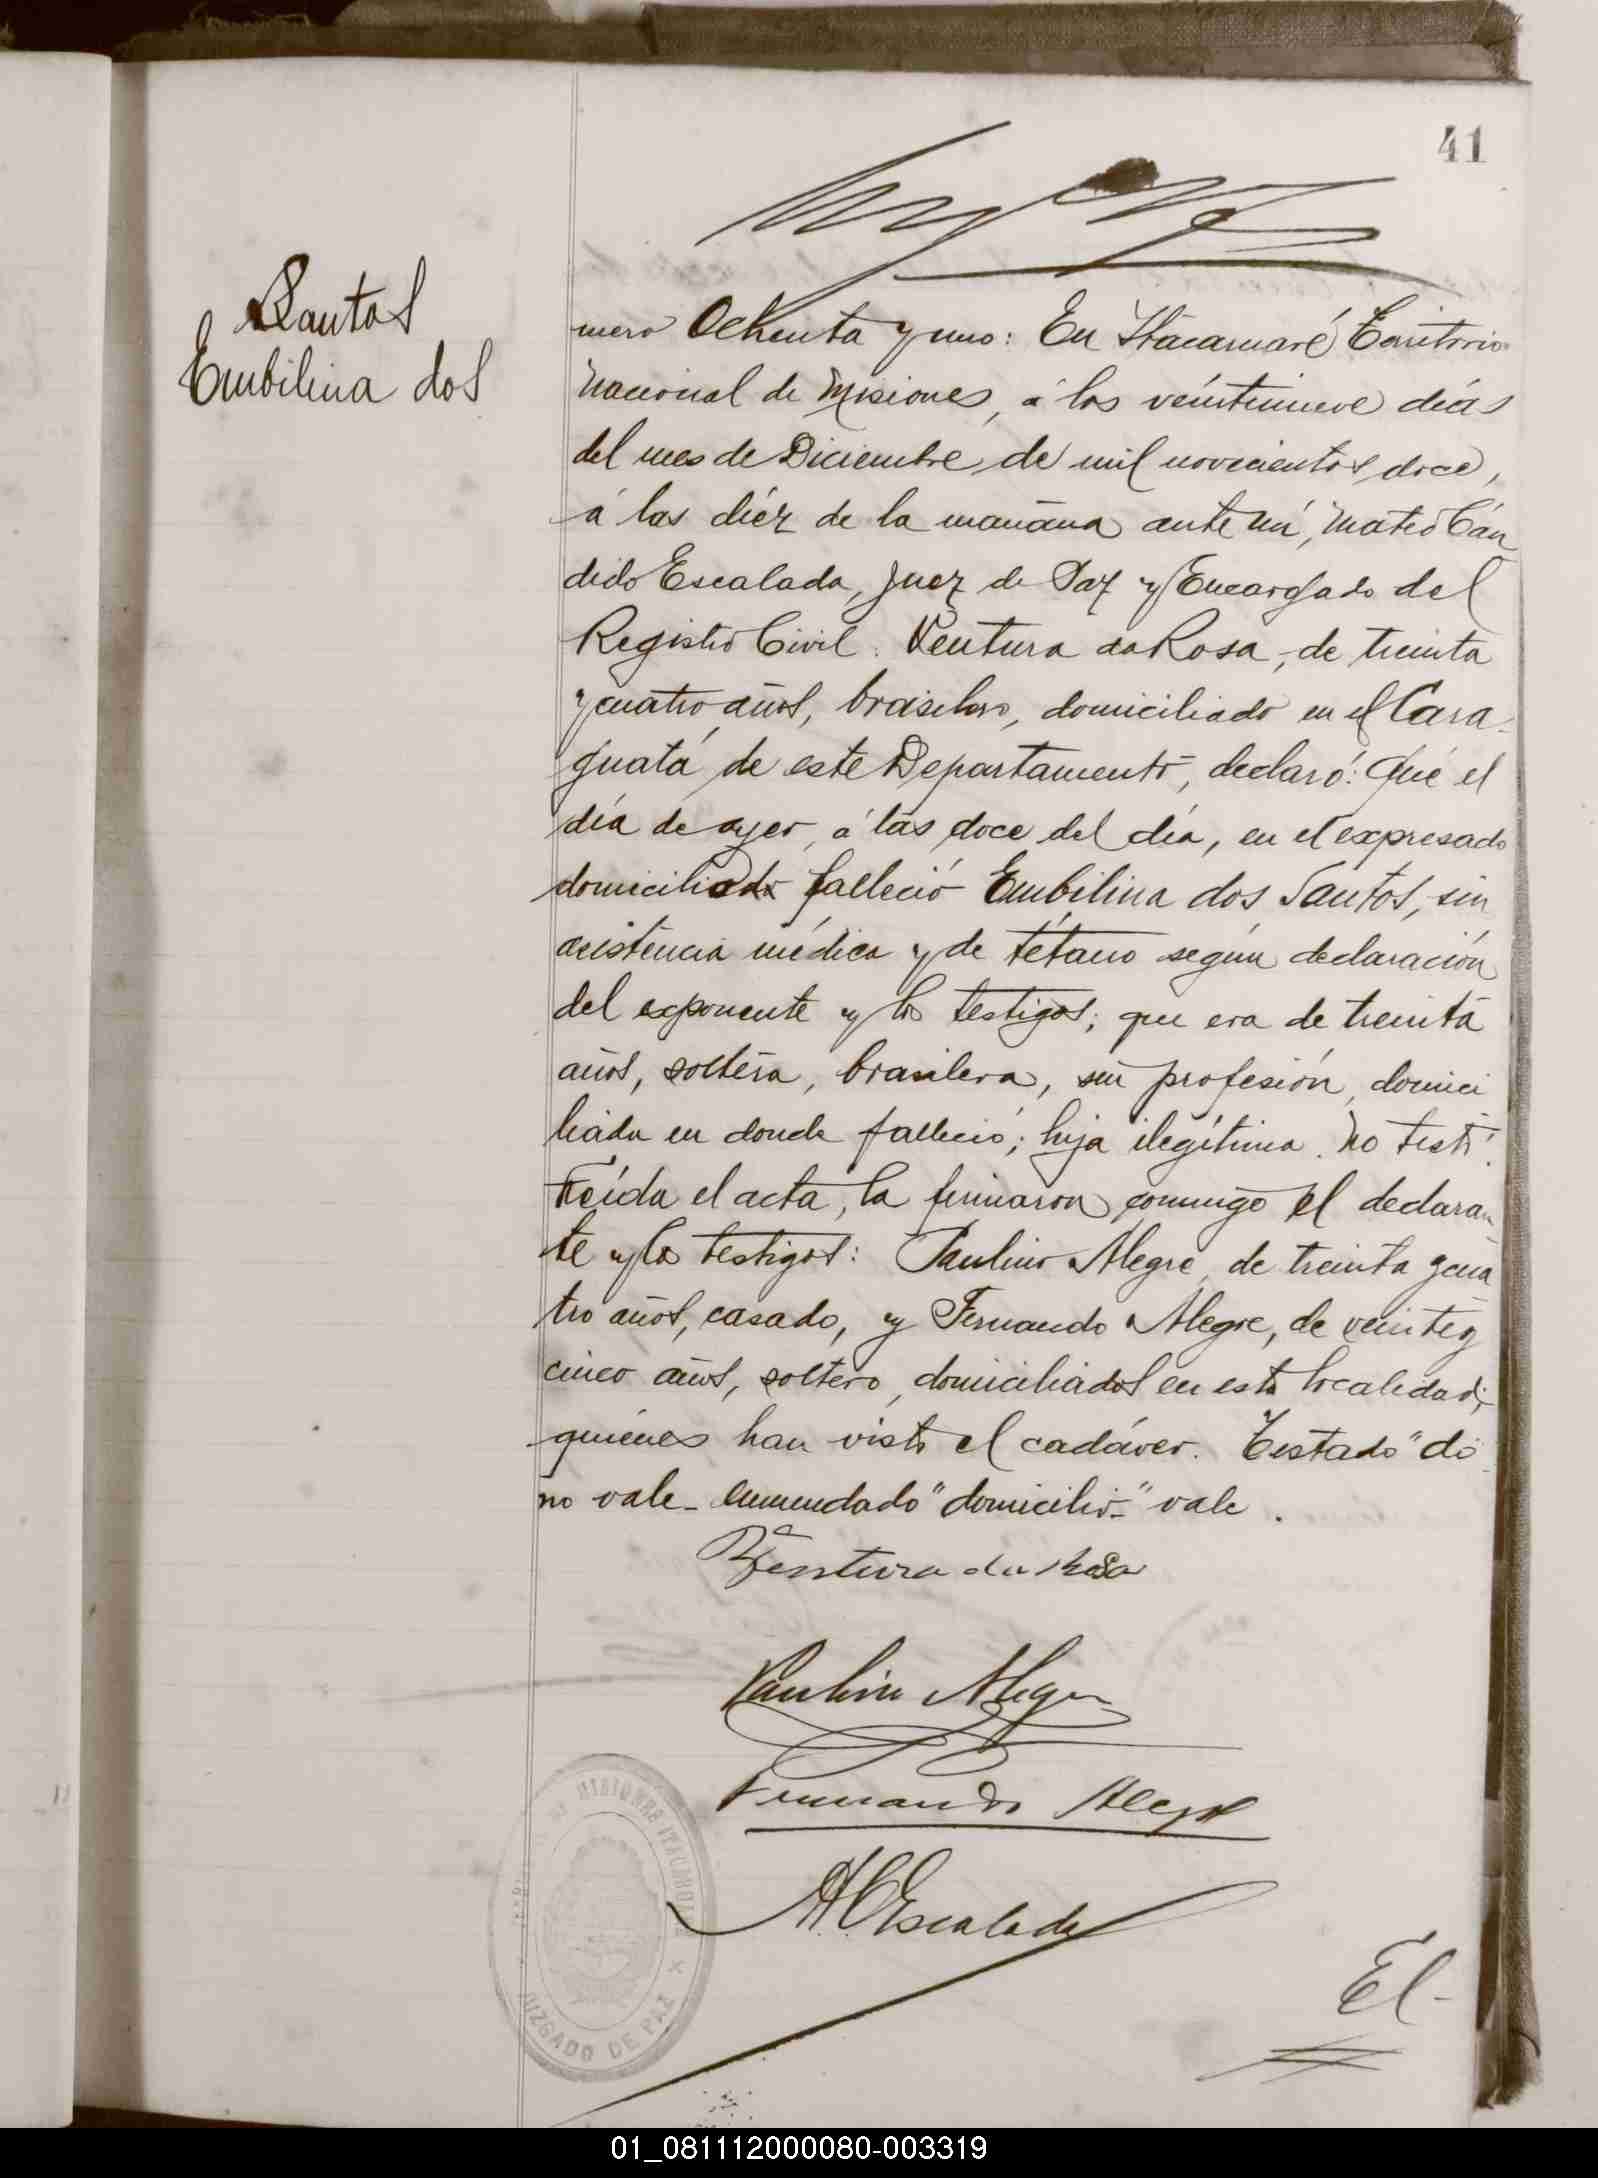 41
Santos
Embilina dos
mero Ochenta y uno: En Itacaruaré Territorio
Nacional de Misiones, á los veintinueve días
del mes de Diciembre, de mil novecientos doce,
á las diéz de la mañana ante mí, Mateo Cán
dido Escalada, Juez de Paz y Encargado del
Registro Civil. Ventura da Rosa, de treinta
y cuatro años, brasilero, domiciliado en el Cara-
guatá de este Departamento, declaró: Qué el
día de ayer, á las doce del día, en el expresado
domiciliodo falleció Embilina dos Santos, sin
asistencia médica y de tétano según declaración
del exponente y los testigos; que era de treinta
años, soltera, brasilera, sin profesión, domici
liada en donde falleció; hija ilegítima. No testó.
Leída el acta, la firmaron conmigo el declaran
te y los testigos: Paulino Alegre, de treinta y cua
tro años, casado, y Fernando Alegre, de veinte y
cinco años, soltero, domiciliados en esta localidad;
quiénes han visto el cadáver. Testado "do"
no vale_ enmendado "domicilio_" vale.
Ventura da Rosa
Paulino Alegre
Fernando Alegre
M. C. Escalada
MISIONES ITACUARARÉ
JUZGADO DE PAZ
El-
01_081112000080-003319